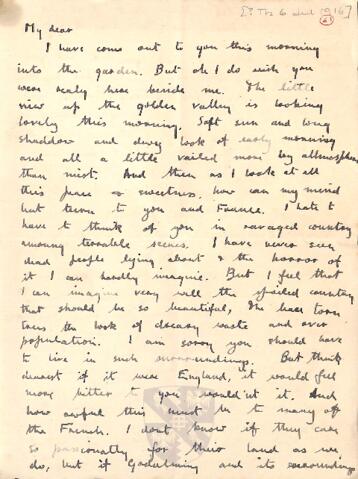 [? Tos 6 Jul 1916]
My dear
I have come out to you this morning
into the garden. But oh I do wish you
were realy here beside me. The little
view up the golden valley is looking
lovely this morning. Soft sun and long
shaddow and dewy look of early morning
and all a little vailed more by atmosphere
than mist. And then as I look at all
this peace & sweetness, how can my mind
but turn to you and France. I hate to
have to think of you in ravaged country
among terrable scenes. I have never seen
dead people lying about & the horror of
it I can hardly imagine. But I feel that
I can imagine very well the spoiled country
that should be so beautiful, the bare torn
trees the look of decay waste and over
population. I am sorry you should have
to live in such surroundings. But think
dearest if it were England, it would feel
more bitter to you would'nt it. And
how awful this must be to many of
the French. I dont know if they care
so passionatly for their land as we
do, but if Godalming and its surroundings